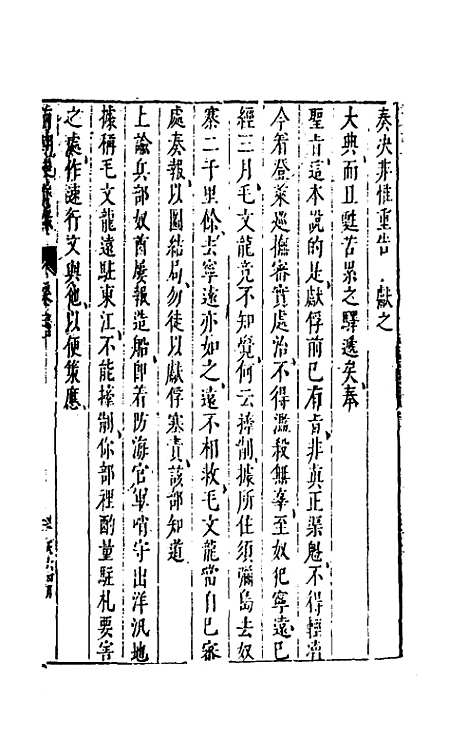 奏决非惟重告 獻之
大典而且甦苦累之驛遞矣奉
聖旨這本說的是獻俘前已有旨非真正渠魁不得輕
今着登萊巡撫審實處治不得濫殺無辜至奴犯寧遠已
經三月毛文龍竟不知覺何云掎制據所住須彌島去奴
寨二千里餘去寧遠亦如之遠不相救毛文龍當自己審
處奏報以圖結局勿徒以獻俘塞責該部知道
上諭兵部奴酋屢報造船卽着防海官軍哨守出洋汛地
據稱毛文龍遠駐東江不能掎制你部裡酌量駐札要害
之處作速行文與他以便策應